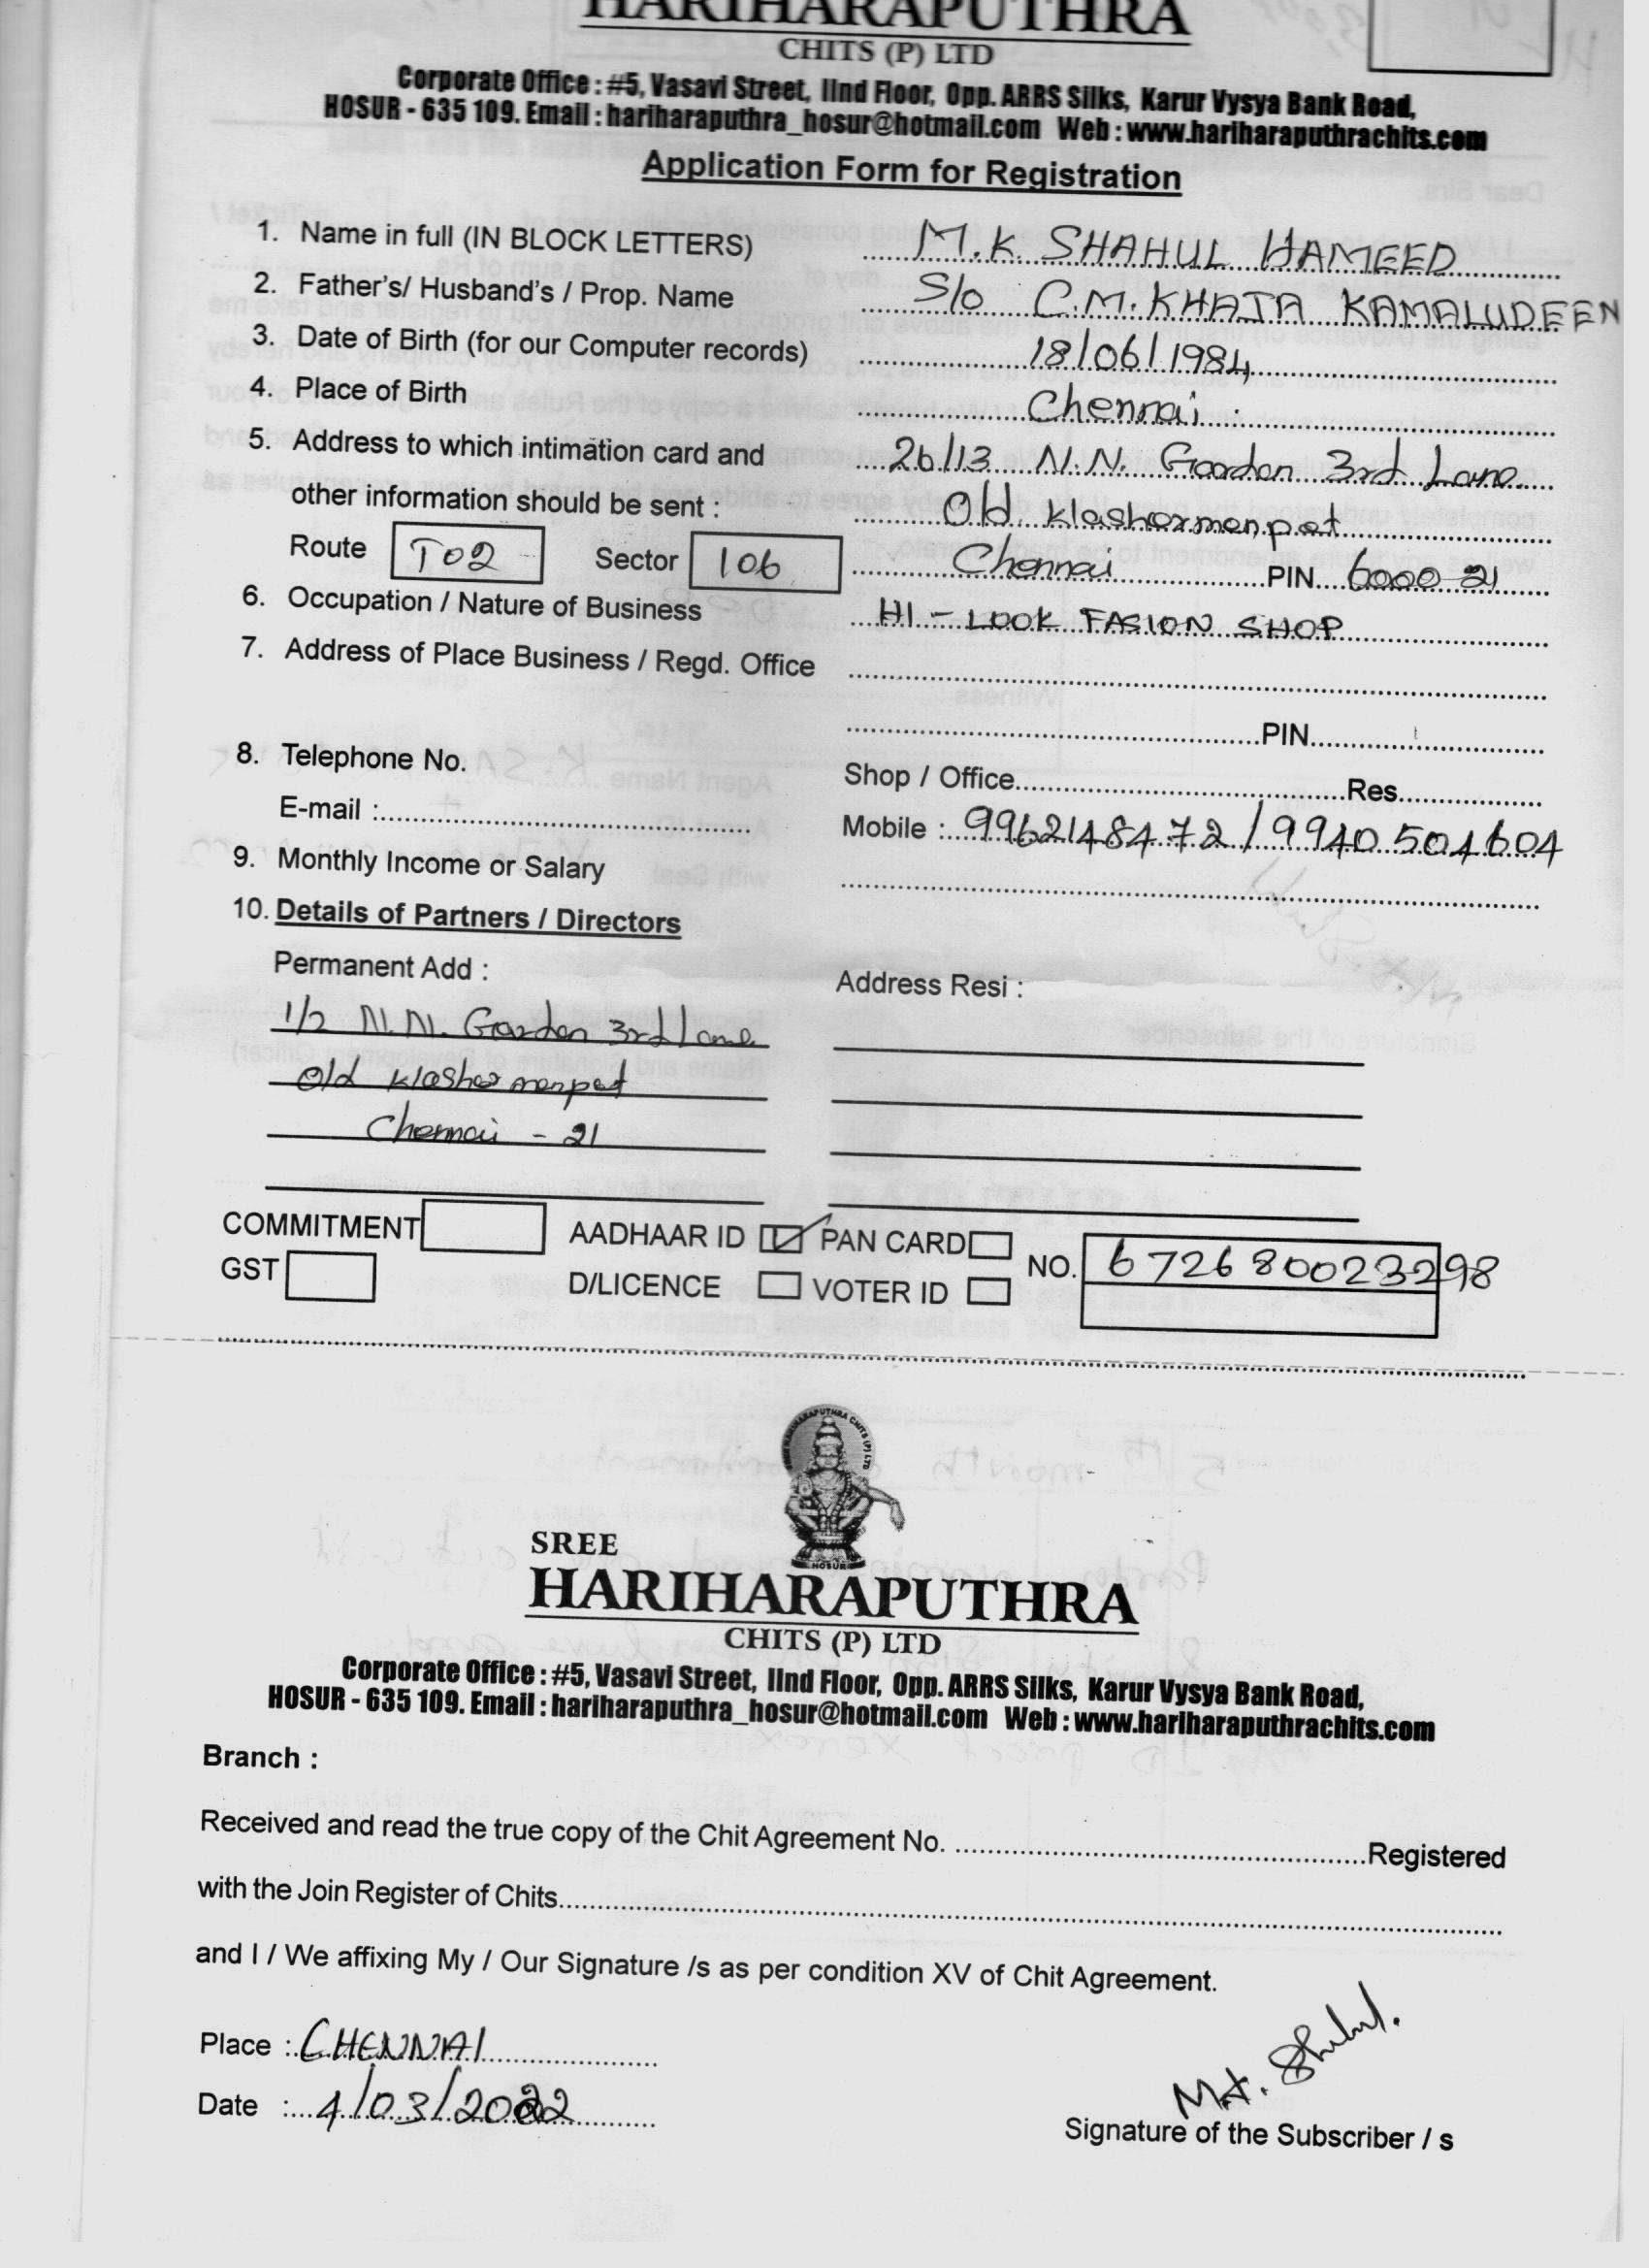 HARIHARAPUTHRA
CHITS (P) LTD
Corporate Office : #5, Vasavi Street, IInd Floor, Opp. ARRS Silks, Karur Vysya Bank Road,
HOSUR - 635 109. Email : hariharaputhra_hosur@hotmail.com Web : www.hariharaputhrachits.com
Application Form for Registration
1. Name in full (IN BLOCK LETTERS) M.K. SHAHUL HAMEED
2. Father's/ Husband's / Prop. Name S/o C.M. KHAJA KAMALUDEEN
3. Date of Birth (for our Computer records) 18/06/1984
4. Place of Birth Chennai
5. Address to which intimation card and 26/13 N.N. Garden 3rd Lane
other information should be sent : Old klashermenpet
Route T02 Sector 106 Chennai PIN 6000 21
6. Occupation / Nature of Business HI - LOOK FASION SHOP
7. Address of Place Business / Regd. Office
PIN
8. Telephone No. Shop / Office Res.
E-mail : Mobile : 9962148472 / 9940504604
9. Monthly Income or Salary
10. Details of Partners / Directors
Permanent Add : Address Resi :
1/2 N.N. Garden 3rd Lane
Old klashermenpet
Chennai - 21
COMMITMENT AADHAAR ID PAN CARD NO. 672680023298
GST D/LICENCE VOTER ID
SREE HARIHARAPUTHRA CHITS (P) LTD
HOSUR
SREE
HARIHARAPUTHRA
CHITS (P) LTD
Corporate Office : #5, Vasavi Street, IInd Floor, Opp. ARRS Silks, Karur Vysya Bank Road,
HOSUR - 635 109. Email : hariharaputhra_hosur@hotmail.com Web : www.hariharaputhrachits.com
Branch :
Received and read the true copy of the Chit Agreement No. Registered
with the Join Register of Chits
and I / We affixing My / Our Signature /s as per condition XV of Chit Agreement.
Place : CHENNAI
Date : 4/03/2022
M.K. Shahul.
Signature of the Subscriber / s